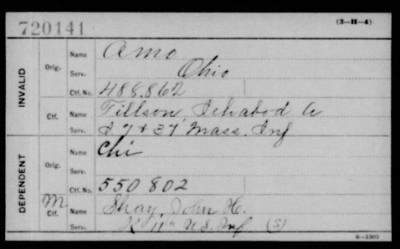 720141
(3-H-4)
INVALID
Orig. Name Amo
Serv. Ohio
Ctf. No. 488.862
Ctf. Name Tillson, Ichabod
Serv. & 37 Mass. Inf
DEPENDENT
Orig. Name Chi
Serv.
Ctf. No. 550 802
M Ctf. Name Shay, John H.
Serv. K 11" U.S. Inf (S)